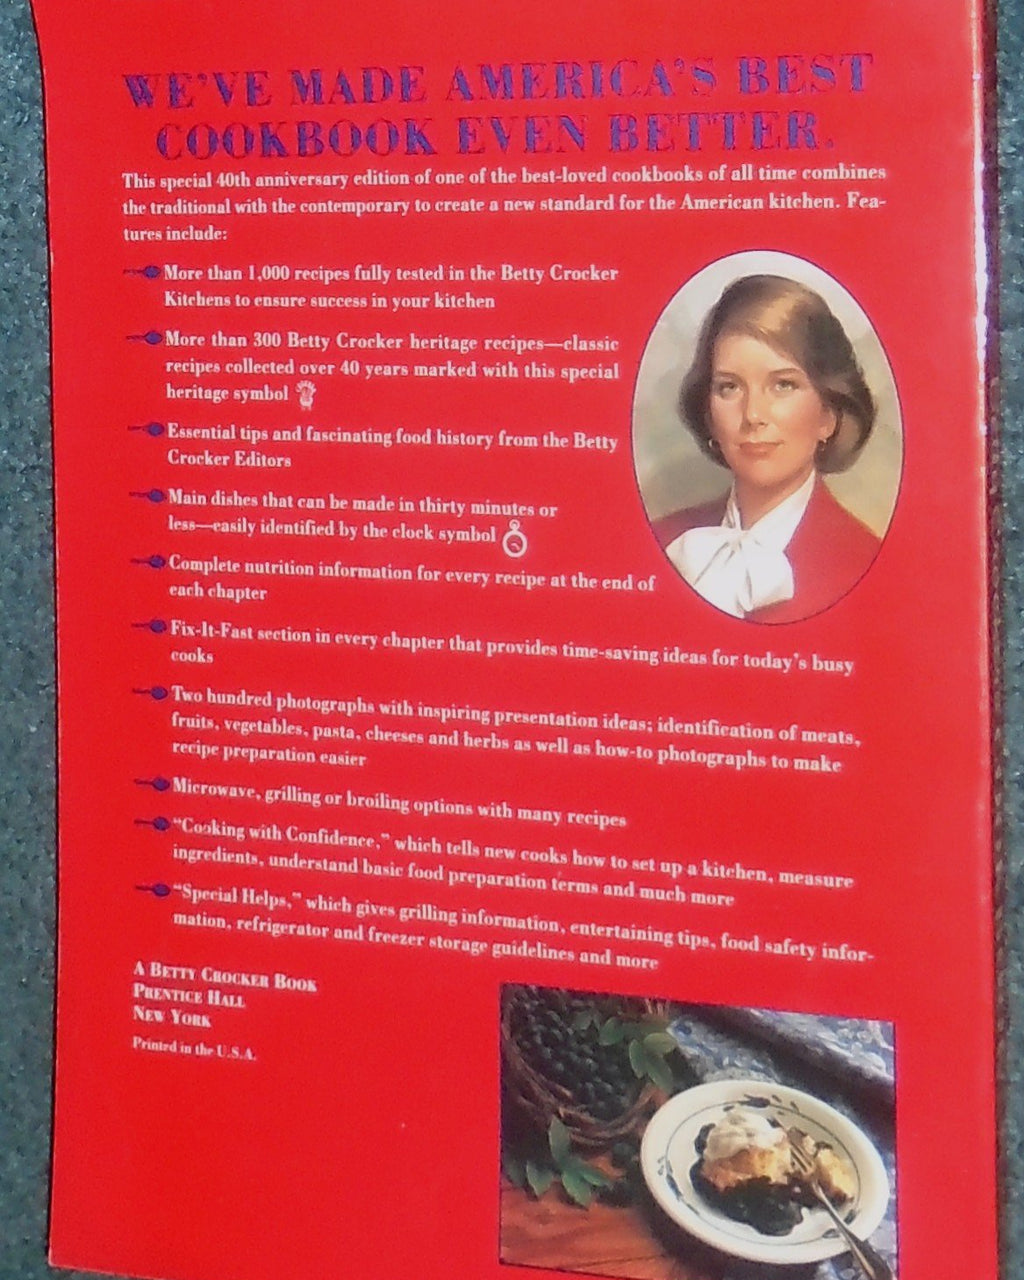 WE'VE MADE AMERICA'S BEST
COOKBOOK EVEN BETTER.
This special 40th anniversary edition of one of the best-loved cookbooks of all time combines
the traditional with the contemporary to create a new standard for the American kitchen. Fea-
tures include:
More than 1,000 recipes fully tested in the Betty Crocker
Kitchens to ensure success in your kitchen
More than 300 Betty Crocker heritage recipes—classic
recipes collected over 40 years marked with this special
heritage symbol
Essential tips and fascinating food history from the Betty
Crocker Editors
Main dishes that can be made in thirty minutes or
less—easily identified by the clock symbol
Complete nutrition information for every recipe at the end of
each chapter
Fix-It-Fast section in every chapter that provides time-saving ideas for today's busy
cooks
Two hundred photographs with inspiring presentation ideas; identification of meats,
fruits, vegetables, pasta, cheeses and herbs as well as how-to photographs to make
recipe preparation easier
Microwave, grilling or broiling options with many recipes
"Cooking with Confidence," which tells new cooks how to set up a kitchen, measure
ingredients, understand basic food preparation terms and much more
"Special Helps," which gives grilling information, entertaining tips, food safety infor-
mation, refrigerator and freezer storage guidelines and more
A BETTY CROCKER BOOK
PRENTICE HALL
NEW YORK
Printed in the U.S.A.